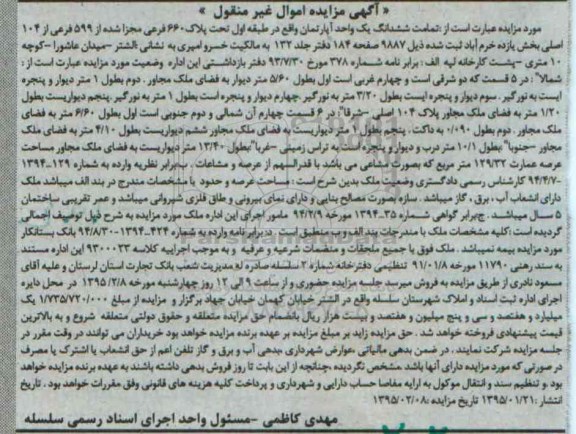 « آگهی مزایده اموال غیر منقول »
مورد مزایده عبارت است از :تمامت ششدانگ یک واحد آپارتمان واقع در طبقه اول تحت پلاک۶۶۰ فرعی مجزا شده از ۵۹۹ فرعی از ۱۰۴
اصلی بخش یازده خرم آباد ثبت شده ذیل ۹۸۸۷ صفحه ۱۸۴ دفتر جلد ۱۳۲ به مالکیت خسرو امیری به نشانی :الشتر –میدان عاشورا –کوچه
۱۰ متری –پشت کارخانه لپه الف : برابر نامه شماره ۳۷۸ مورخ ۹۳/۷/۳۰ دفتر بازداشتی این اداره وضعیت مورد مزایده عبارت است از:
شمالا" : در ۵ قسمت که دو شرقی است و چهارم غربی است اول بطول ۵/۶۰ متر دیوار به فضای ملک مجاور . دوم بطول ۱ متر دیوار و پنجره
ایست به نورگیر . سوم دیوار و پنجره ایست بطول ۳/۲۰ متر به نورگیر. چهارم دیوار و پنجره است بطول ۱ متر به نورگیر. پنجم دیواریست بطول
۱/۲۰ متر به فضای ملک مجاور پلاک ۱۰۴ اصلی –شرقا" در ۶ قسمت چهارم آن شمالی و دوم جنوبی است اول بطول ۶/۶۰ متر به فضای
ملک مجاور . دوم بطول ۰/۹۰ به داکت . پنجم بطول ۱ متر دیواریست به فضای ملک مجاور ششم دیواریست بطول ۴/۱۰ متر به فضای ملک
مجاور –جنوبا" بطول ۱۰/۱ متر درب و دیوار و پنجره است به تراس زمینی –غربا"بطول ۱۳/۴۰ متر دیواریست به فضای ملک مجاور مساحت
عرصه عمارت ۱۲۹/۳۲ متر مربع که بصورت مشاعی می باشد با قدرالسهم از عرصه و مشاعات . ب:برابر نظریه وارده به شماره ۱۲۹–۱۳۹۴
–۹۴/۴/۷ کارشناس رسمی دادگستری وضعیت ملک بدین شرح است : مساحت عرصه و حدود با مشخصات مندرج در بند الف میباشد ملک
دارای انشعاب آب ، برق ، گاز میباشد . سازه بصورت مصالح بنایی و دارای نمای بیرونی و طاق فلزی شیروانی میباشد و عمر تقریبی ساختمان
۵ سال میباشد . ج:برابر گواهی شماره ۳۵–۱۳۹۴ مورخه ۹۴/۲/۹ مامور اجرای این اداره ملک مورد مزایده به شرح ذیل توصیف اجمالی
گردیده است :کلیه مشخصات ملک با مندرجات بند الف و ب منطبق است . د :برابر نامه وارده به شماره ۴۲۴–۱۳۹۴–۹۴/۸/۳۰ بانک بستانکار
مورد مزایده بیمه نمیباشد . ملک فوق با جمیع ملحقات و منضمات شرعیه و عرفیه و به موجب اجراییه کلاسه ۹۳۰۰۰۳۳ این اداره مستند
به سند رهنی ۱۱۷۹۰ مورخه ۹۱/۰۱/۸ تنظیمی دفترخانه شماره ۳ سلسله صادره له مدیریت شعب بانک تجارت استان لرستان و علیه آقای
مسعود نادری از طریق مزایده به فروش میرسد جلسه مزایده حضوری و از ساعت ۹ الی ۱۲ روز چهارشنبه مورخه ۱۳۹۵/۲/۸ در محل دایره
اجرای اداره ثبت اسناد و املاک شهرستان سلسله واقع در الشتر خیابان کهمان خیابان جهاد برگزار و مزایده از مبلغ ۱/۷۳۵/۷۲۰/۰۰۰ یک
میلیارد و هفتصد و سی و پنج میلیون و هفتصد و بیست هزار ریال بانضمام حق مزایده متعلقه و حقوق دولتی متعلقه شروع و به بالاترین
قیمت پیشنهادی فروخته خواهد شد . حق مزایده زاید بر مبلغ مزایده بر عهده برنده مزایده خواهد بود خریداران می توانند در وقت مقرر در
جلسه مزایده شرکت نمایند . در ضمن بدهی مالیاتی ،عوارض شهرداری ،بدهی آب و برق و گاز تلفن اعم از حق انشعاب یا اشتراک یا مصرف
در صورتی که مورد مزایده دارای آنها باشد .مشخص نگردیده ،چنانچه از این بابت تا روز فروش بدهی داشته باشند به عهده برنده مزایده خواهد
بود .و تنظیم سند و انتقال موکول به ارایه مفاصا حساب دارایی و شهرداری و پرداخت کلیه هزینه های قانونی وفق مقررات خواهد بود . تاریخ
انتشار : ۱۳۹۵/۰۱/۲۱ تاریخ مزایده :۱۳۹۵/۰۲/۰۸
مهدی کاظمی –مسئول واحد اجرای اسناد رسمی سلسله